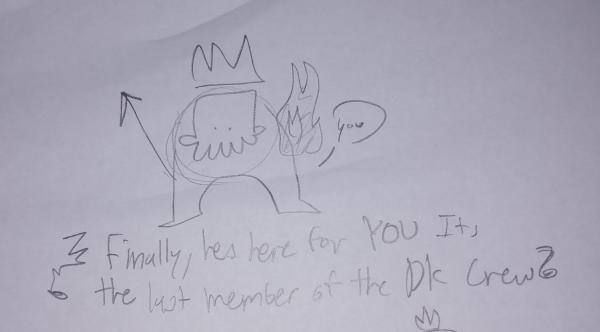 you
Finally, hes here for YOU Its
the last member of the Dk Crew